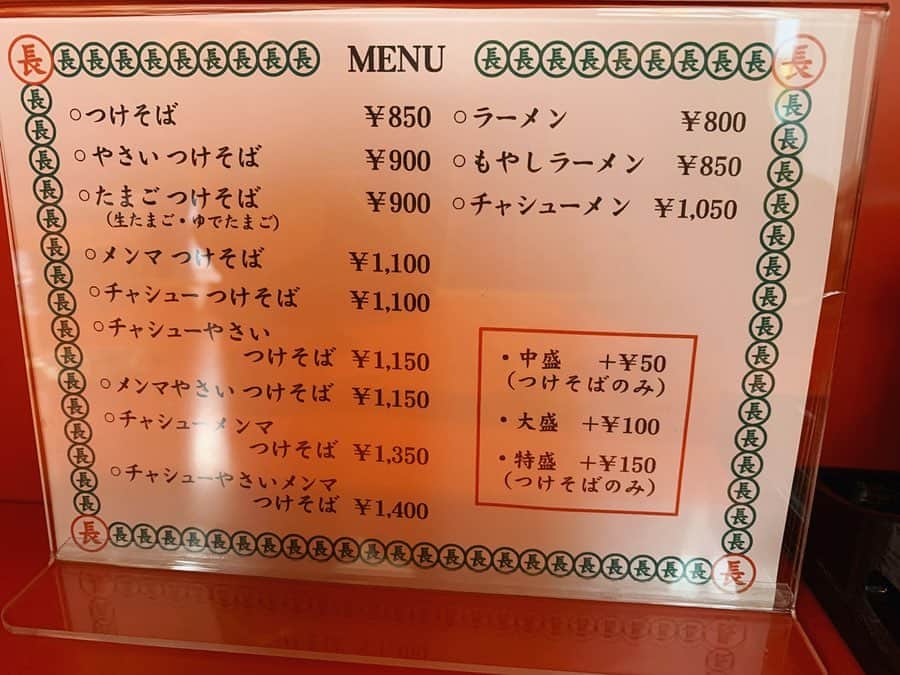 長長長長長長長長長長 MENU 長長長長長長長長長長
○つけそば ￥850
○やさい つけそば ￥900
○たまご つけそば ￥900
(生たまご・ゆでたまご)
○メンマ つけそば ￥1,100
○チャシュー つけそば ￥1,100
○チャシューやさい
つけそば ￥1,150
○メンマやさい つけそば ￥1,150
○チャシューメンマ
つけそば ￥1,350
○チャシューやさいメンマ
つけそば ￥1,400
○ラーメン ￥800
○もやしラーメン ￥850
○チャシューメン ￥1,050
・中盛 +¥50
(つけそばのみ)
・大盛 +¥100
・特盛 +¥150
(つけそばのみ)